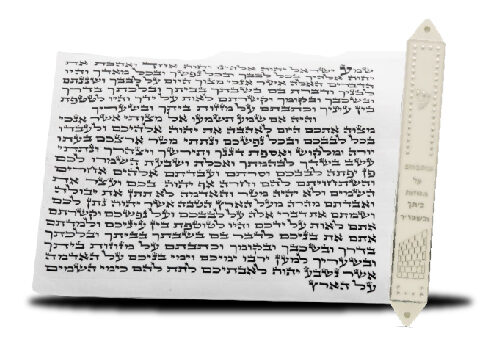 שמע ישראל יהוה אלהינו יהוה אחד ואהבת את
יהוה אלהיך בכל לבבך ובכל נפשך ובכל מאדך והיו
הדברים האלה אשר אנכי מצוך היום על לבבך ושננתם
לבניך ודברת בם בשבתך בביתך ובלכתך בדרך
ובשכבך ובקומך וקשרתם לאות על ידך והיו לטטפת
בין עיניך וכתבתם על מזזות ביתך ובשעריך
והיה אם שמע תשמעו אל מצותי אשר אנכי
מצוה אתכם היום לאהבה את יהוה אלהיכם ולעבדו
בכל לבבכם ובכל נפשכם ונתתי מטר ארצכם בעתו
יורה ומלקוש ואספת דגנך ותירשך ויצהרך ונתתי
עשב בשדך לבהמתך ואכלת ושבעת השמרו לכם
פן יפתה לבבכם וסרתם ועבדתם אלהים אחרים
והשתחויתם להם וחרה אף יהוה בכם ועצר את
השמים ולא יהיה מטר והאדמה לא תתן את יבולה
ואבדתם מהרה מעל הארץ הטבה אשר יהוה נתן לכם
ושמתם את דברי אלה על לבבכם ועל נפשכם וקשרתם
אתם לאות על ידכם והיו לטוטפת בין עיניכם ולמדתם
אתם את בניכם לדבר בם בשבתך בביתך ובלכתך
בדרך ובשכבך ובקומך וכתבתם על מזוזות ביתך
ובשעריך למען ירבו ימיכם וימי בניכם על האדמה
אשר נשבע יהוה לאבתיכם לתת להם כימי השמים
על הארץ
וכתבתם
על
מזוזות
ביתך
ובשעריך